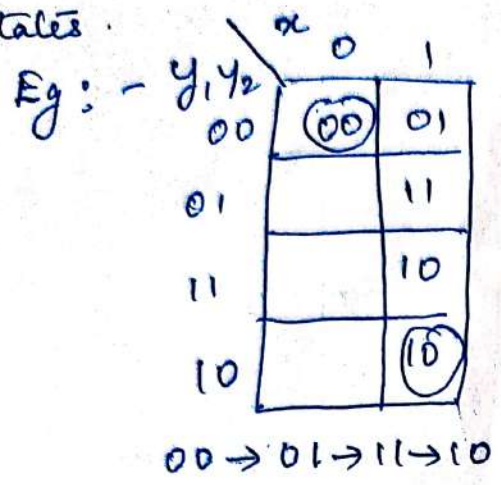 tates.
Eg :- y₁y₂ x 0 1
00 00 01
01 11
11 10
10 10
00 → 01 → 11 → 10